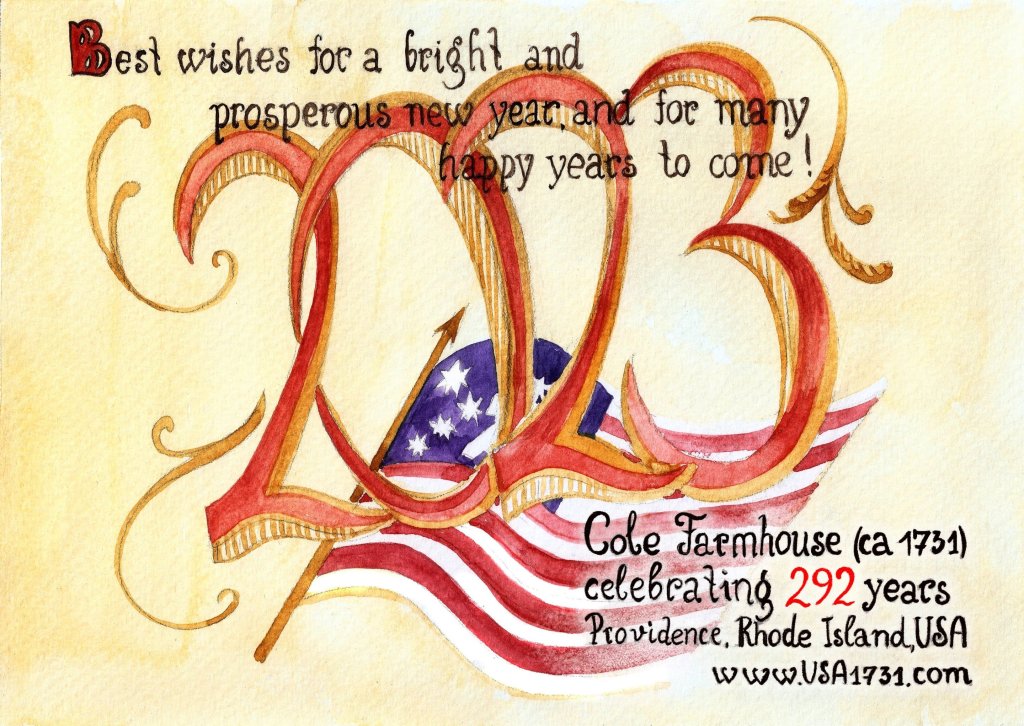 Best wishes for a bright and
prosperous new year, and for many
happy years to come!
2023
Cole Farmhouse (ca 1731)
celebrating 292 years
Providence, Rhode Island, USA
www.USA1731.com